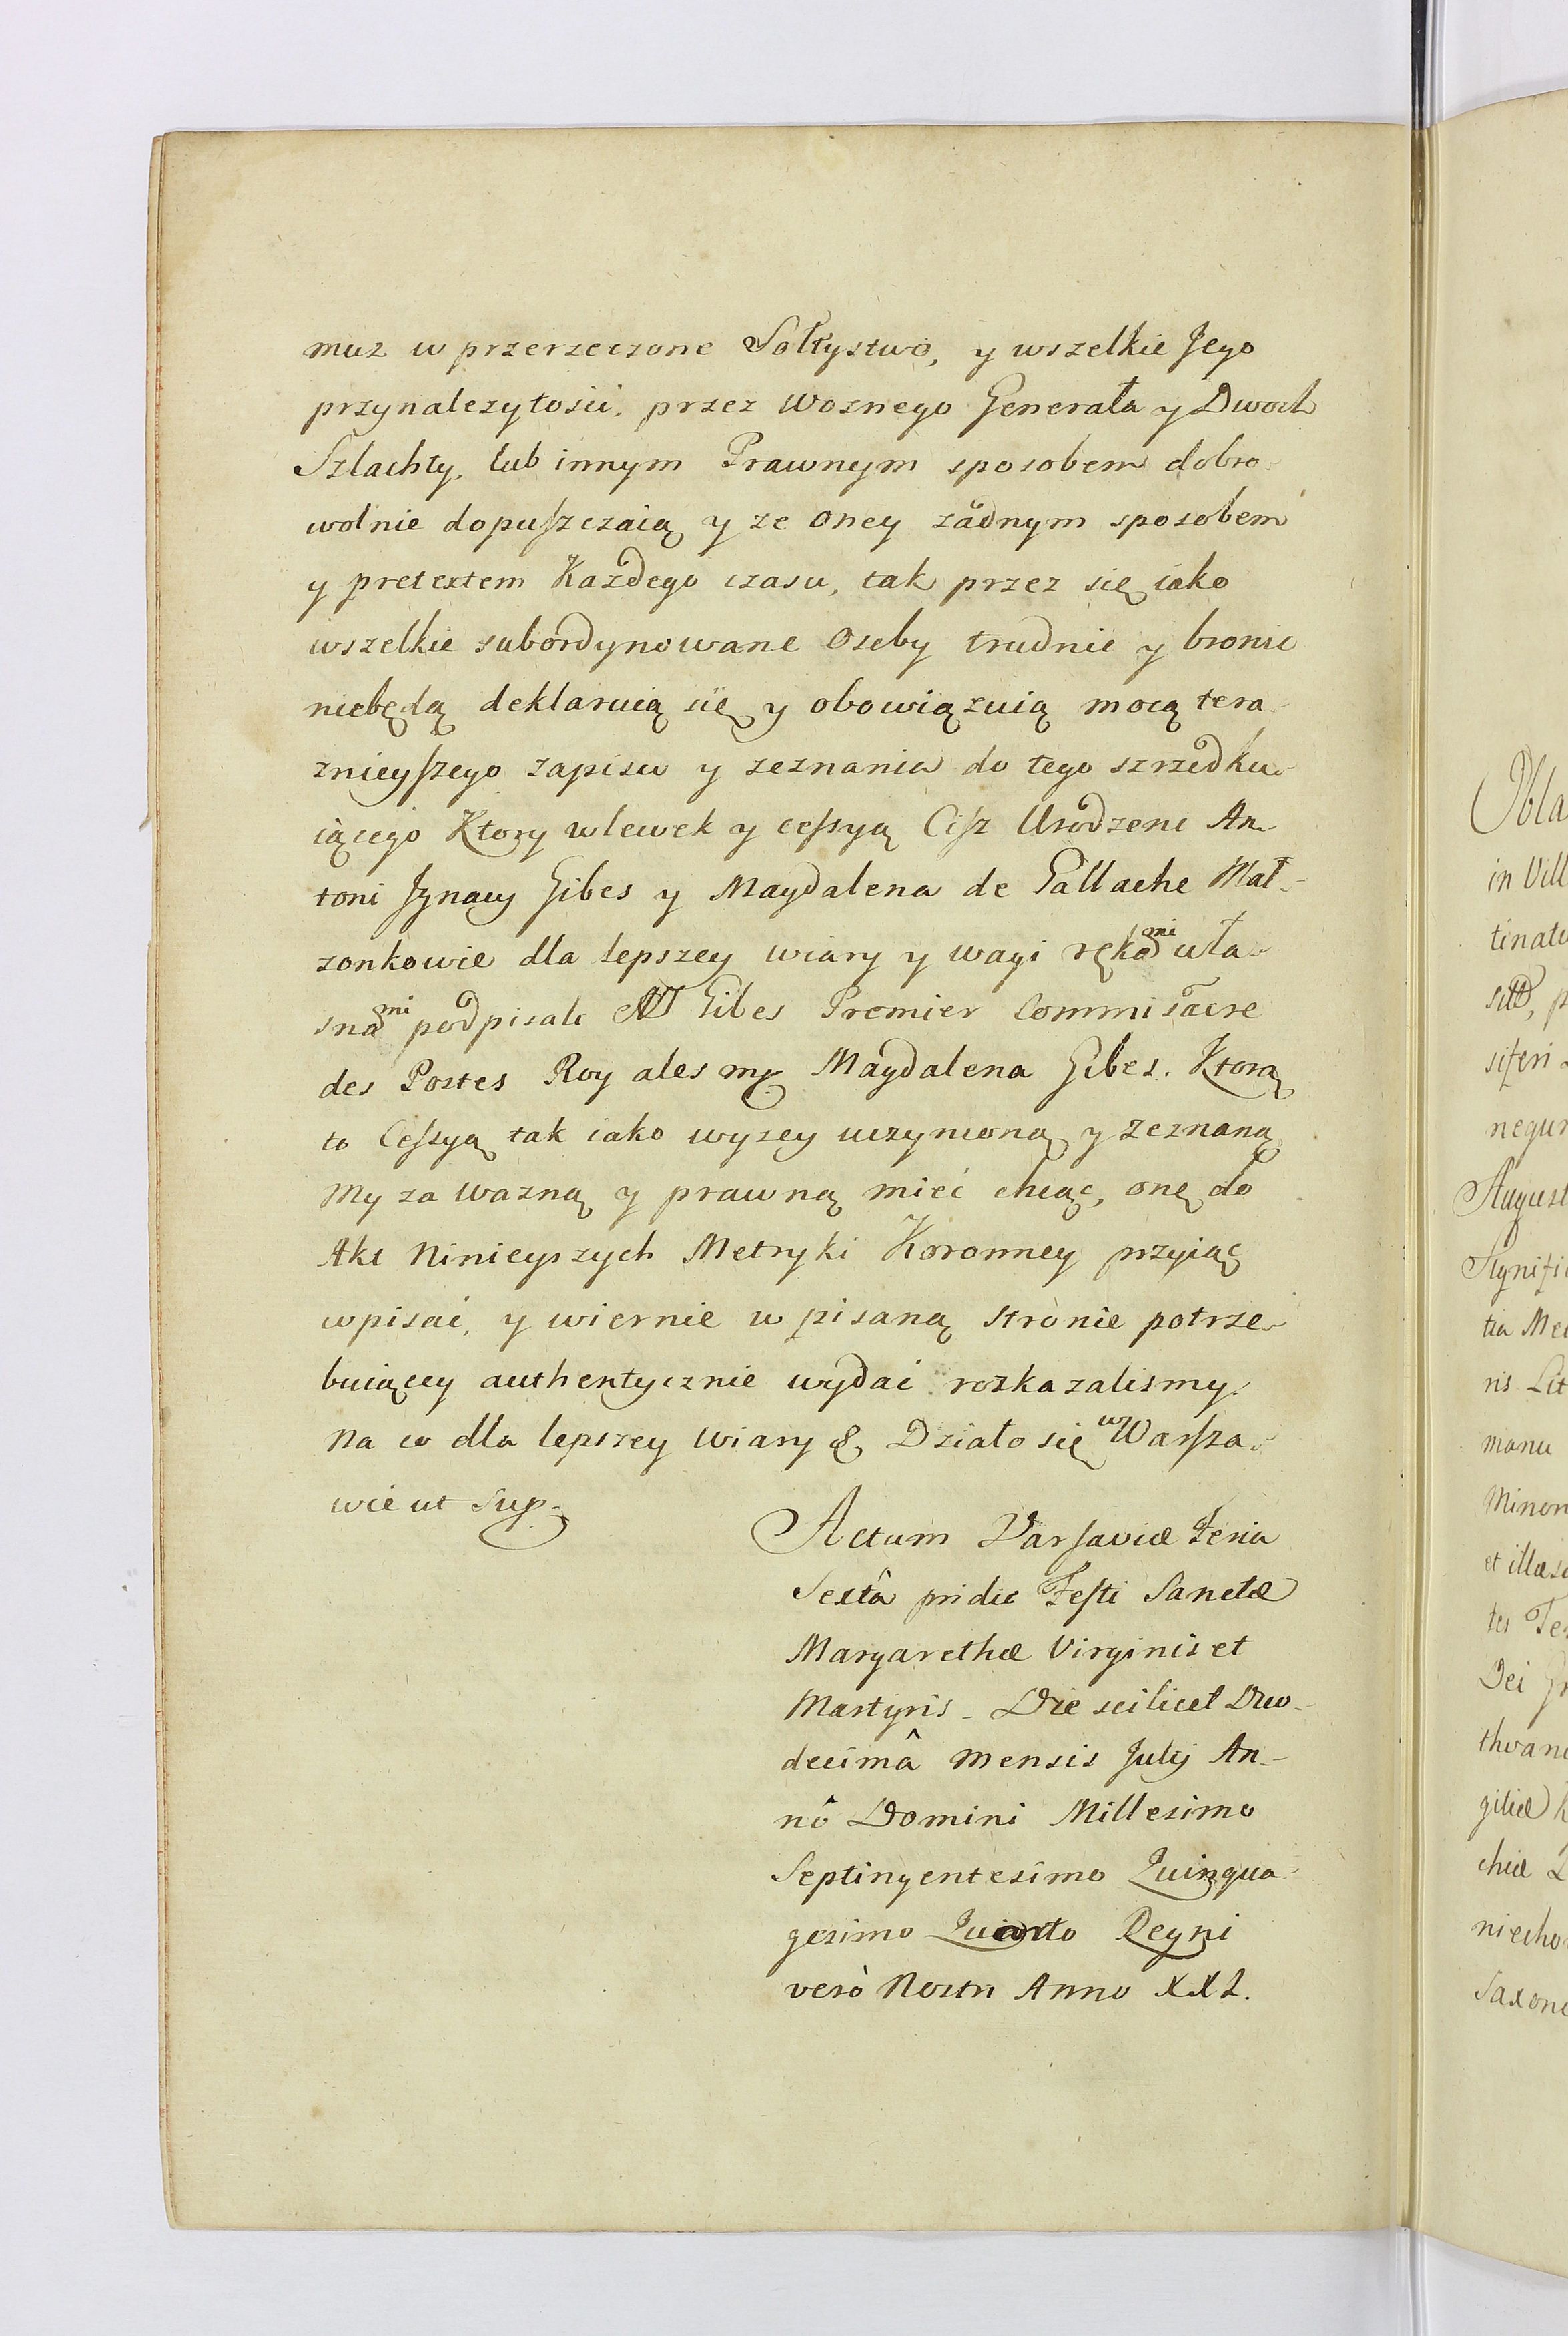 muz w przerzeczone Sołtystwo, y wszelkie Jego
przynalezytosci, przez Woznego Generała y Dwoch
Szlachty, lub innym Prawnym sposobem dobro
wolnie dopuszczaią y ze oney zadnym sposobem
y pretextem Kazdego czasu, tak przez się iako
wszelkie subordynowane Osoby trudnic y bronic
niebędą deklaruią się y obowiązuią mocą tera
znieyszego zapisu y zeznania do tego szrzodku
iącego Ktory wlewek y cessyą Cisz Urodzeni An
toni Jgnacy Gibes y Magdalena de Pallache Mał-
zonkowie dla lepszey wiary y wagi rękami wła
snami podpisali Gibes Premier Commisaire
des Postes Royales mp Magdalena Gibes. Ktorą
to Cessyą tak iako wyzey uczynioną y zeznaną
My za wazną y prawną mieć chcąc, onę do
Akt Ninieyszych Metryki Koronney przyiąc
wpisać, y wiernie wpisaną stronie potrze
buiącey authentycznie wydać rozkazalismy.
Na co dla lepszey Wiary & Działo się w Warsza
wie ut Sup.
Actum Varsaviæ Feria
Sextâ pridie Festi Sanctæ
Margarethæ Virginis et
Martyris - Die scilicet Duo-
decimâ Mensis Julij An-
nô Domini Millesimo
Septingentesimo Quinqua
gesimo Quarto Regni
verò Nostri Anno XXI.
Obla
in Vill
tinatu
negur
August
Signifi
tia Me
ris Lit
manu
Minor
tes Te
Dei Gr
thvan
giliæ K
chiæ L
niecho
Saxone